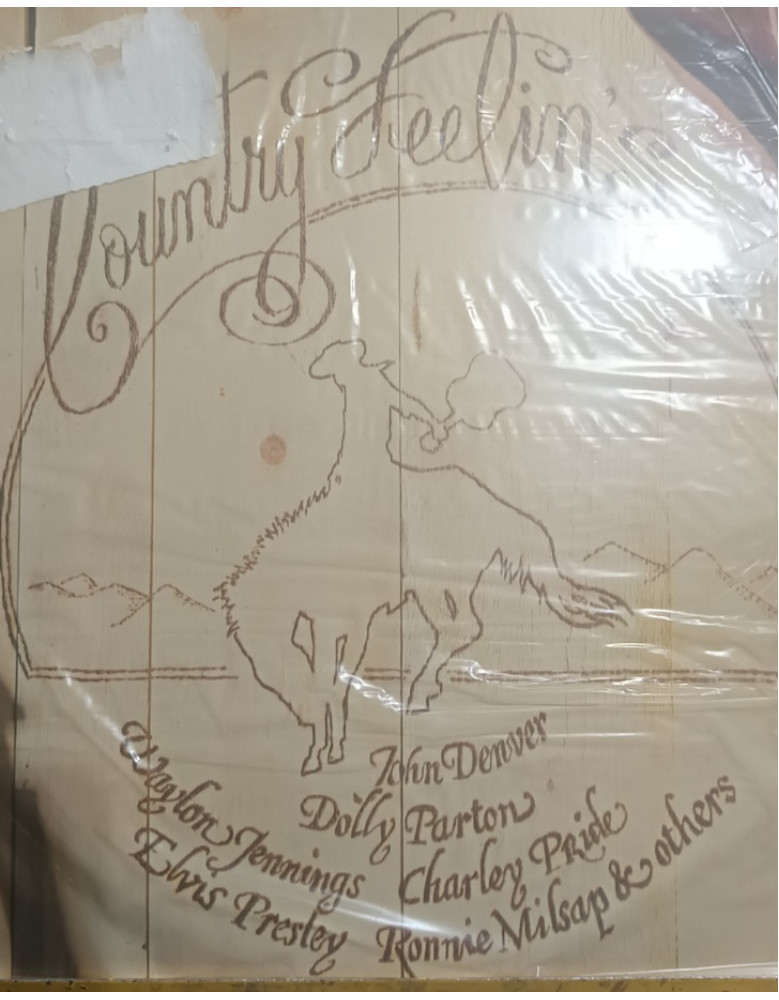 Country Feelin's
John Denver
Dolly Parton
Waylon Jennings
Charley Pride
Elvis Presley
Ronnie Milsap & others